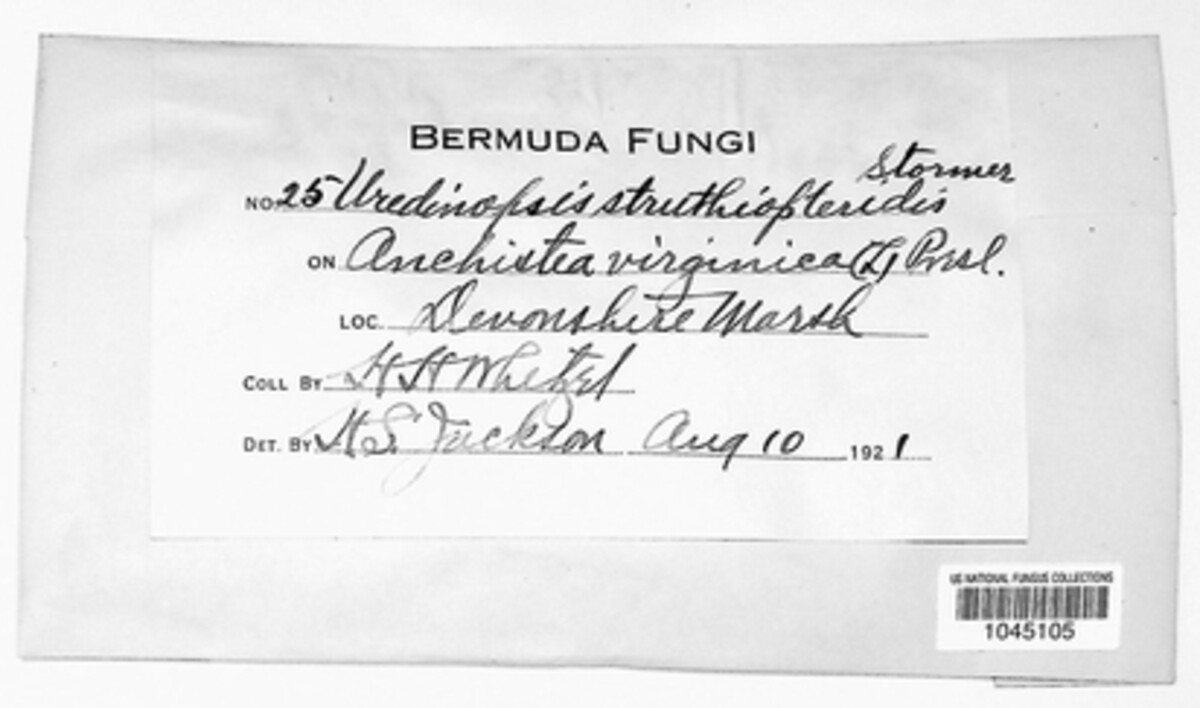 BERMUDA FUNGI
Stormer
NO. 25 Uredinopsis struthiopteridis
ON Anchistea virginica (L) Presl.
LOC. Devonshire Marsh
COLL BY H H Whetzel
DET. BY H.S. Jackson Aug 10 1921
US NATIONAL FUNGUS COLLECTIONS
1045105